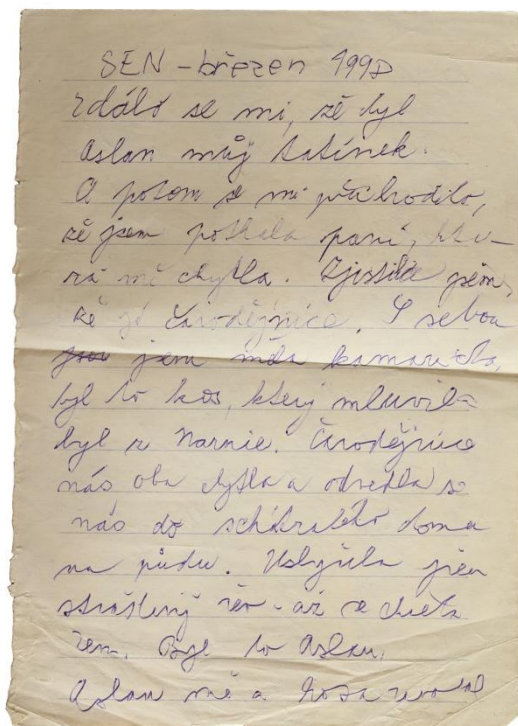 SEN - březen 1998
zdálo se mi, že byl
Aslan můj tatínek.
A potom se mi přihodilo,
že jsem potkala paní, kte-
rá mě chytla. Zjistila jsem,
že je čarodějnice. S sebou
jsem měla kamaráda,
byl to kos, který mluvil -
byl z Narnie. Čarodějnice
nás oba chytla a odvedla
nás do schátralého domu
na půdu. Uslyšela jsem
strašlivý řev - až se chvěla
zem. Byl to Aslan.
Aslan mě a kosa